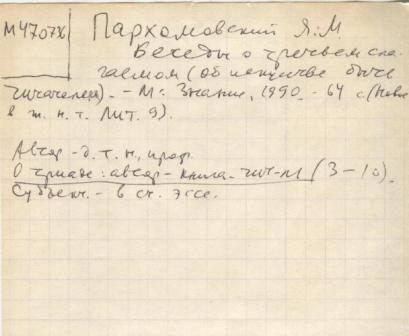 М47078 Пархомовский Я.М.
Беседы о третьем сла-
гаемом (Об искусстве быть
читателем). - М.: Знание, 1990. - 64 с. (Новое
в ж. н. т. Лит. 9).
Автор - д. т. н., проф.
О триаде: автор - книга - чит-ль (3-10).
Субъект. - в ст. эссе.